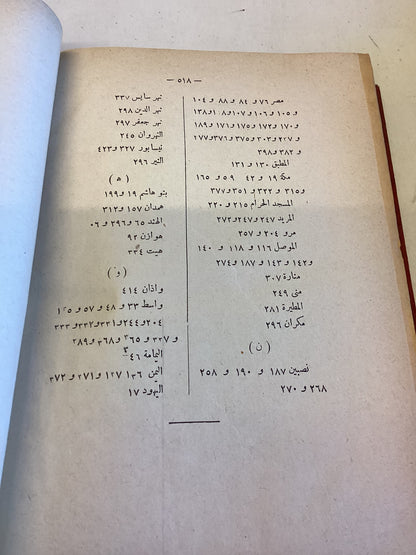 — ٥١٨ —
مصر ٧٦ و ٨٤ و ٨٨ و ١٠٤
و ١٠٥ و ١٠٦ و ١٠٧ و ١٠٨ و ١٣٨
و ١٧٠ و ١٧٢ و ١٧٥ و ١٧١ و ١٨٩
و ٢٠٧ و ٣٠٣ و ٣٦٥ و ٣٧٦ و ٣٧٧
و ٣٨٢ و ٣٩٨
المطبق ١٣٠ و ١٣١
مكة ١٩ و ٤٢ و ٥٩ و ١٦٥
و ٣١٥ و ٣٢٢ و ٣٥١ و ٣٧٧
المسجد الحرام ٢١٥ و ٢٢٠
المربد ٢٤٧ و ٢٤٧ و ٢٧٢
مرو ٢٠٤ و ٢٥٧
الموصل ١١٦ و ١١٨ و ١٤٠
و ١٤٢ و ١٤٣ و ١٨٧ و ٢٧٤
منارة ٣٠٧
منى ٢٤٩
المطيرة ٢٨١
مكران ٢٩٦
( ن )
نصبين ١٨٧ و ١٩٠ و ٢٥٨
٢٦٨ و ٢٧٠
نهر سايس ٣٣٧
نهر الدين ٢٩٨
نهر جعفر ٢٩٧
النهروان ٢٤٥
نيسابور ٣٢٧ و ٤٢٣
النير ٢٩٦
( ه )
بنو هاشم ١٩ و ١٩٩
همدان ١٥٧ و ٣١٢
الهند ٦٥ و ٢٩٦ و
هوازن ٩٢
هيت ٣٣٤
( و )
واذان ٤١٤
واسط ٣٣ و ٤٨ و ٥٧ و
٢٠٤ و ٢٤٤ و ٣٣١ و ٣٣٢ و ٣٣٣
و ٣٣٧ و ٣٦٥ و ٣٦٨ و ٣٨٩
اليمامة
اليمن ١٣٦ و ٢٧١ و ٣٧٣
اليهود ١٧